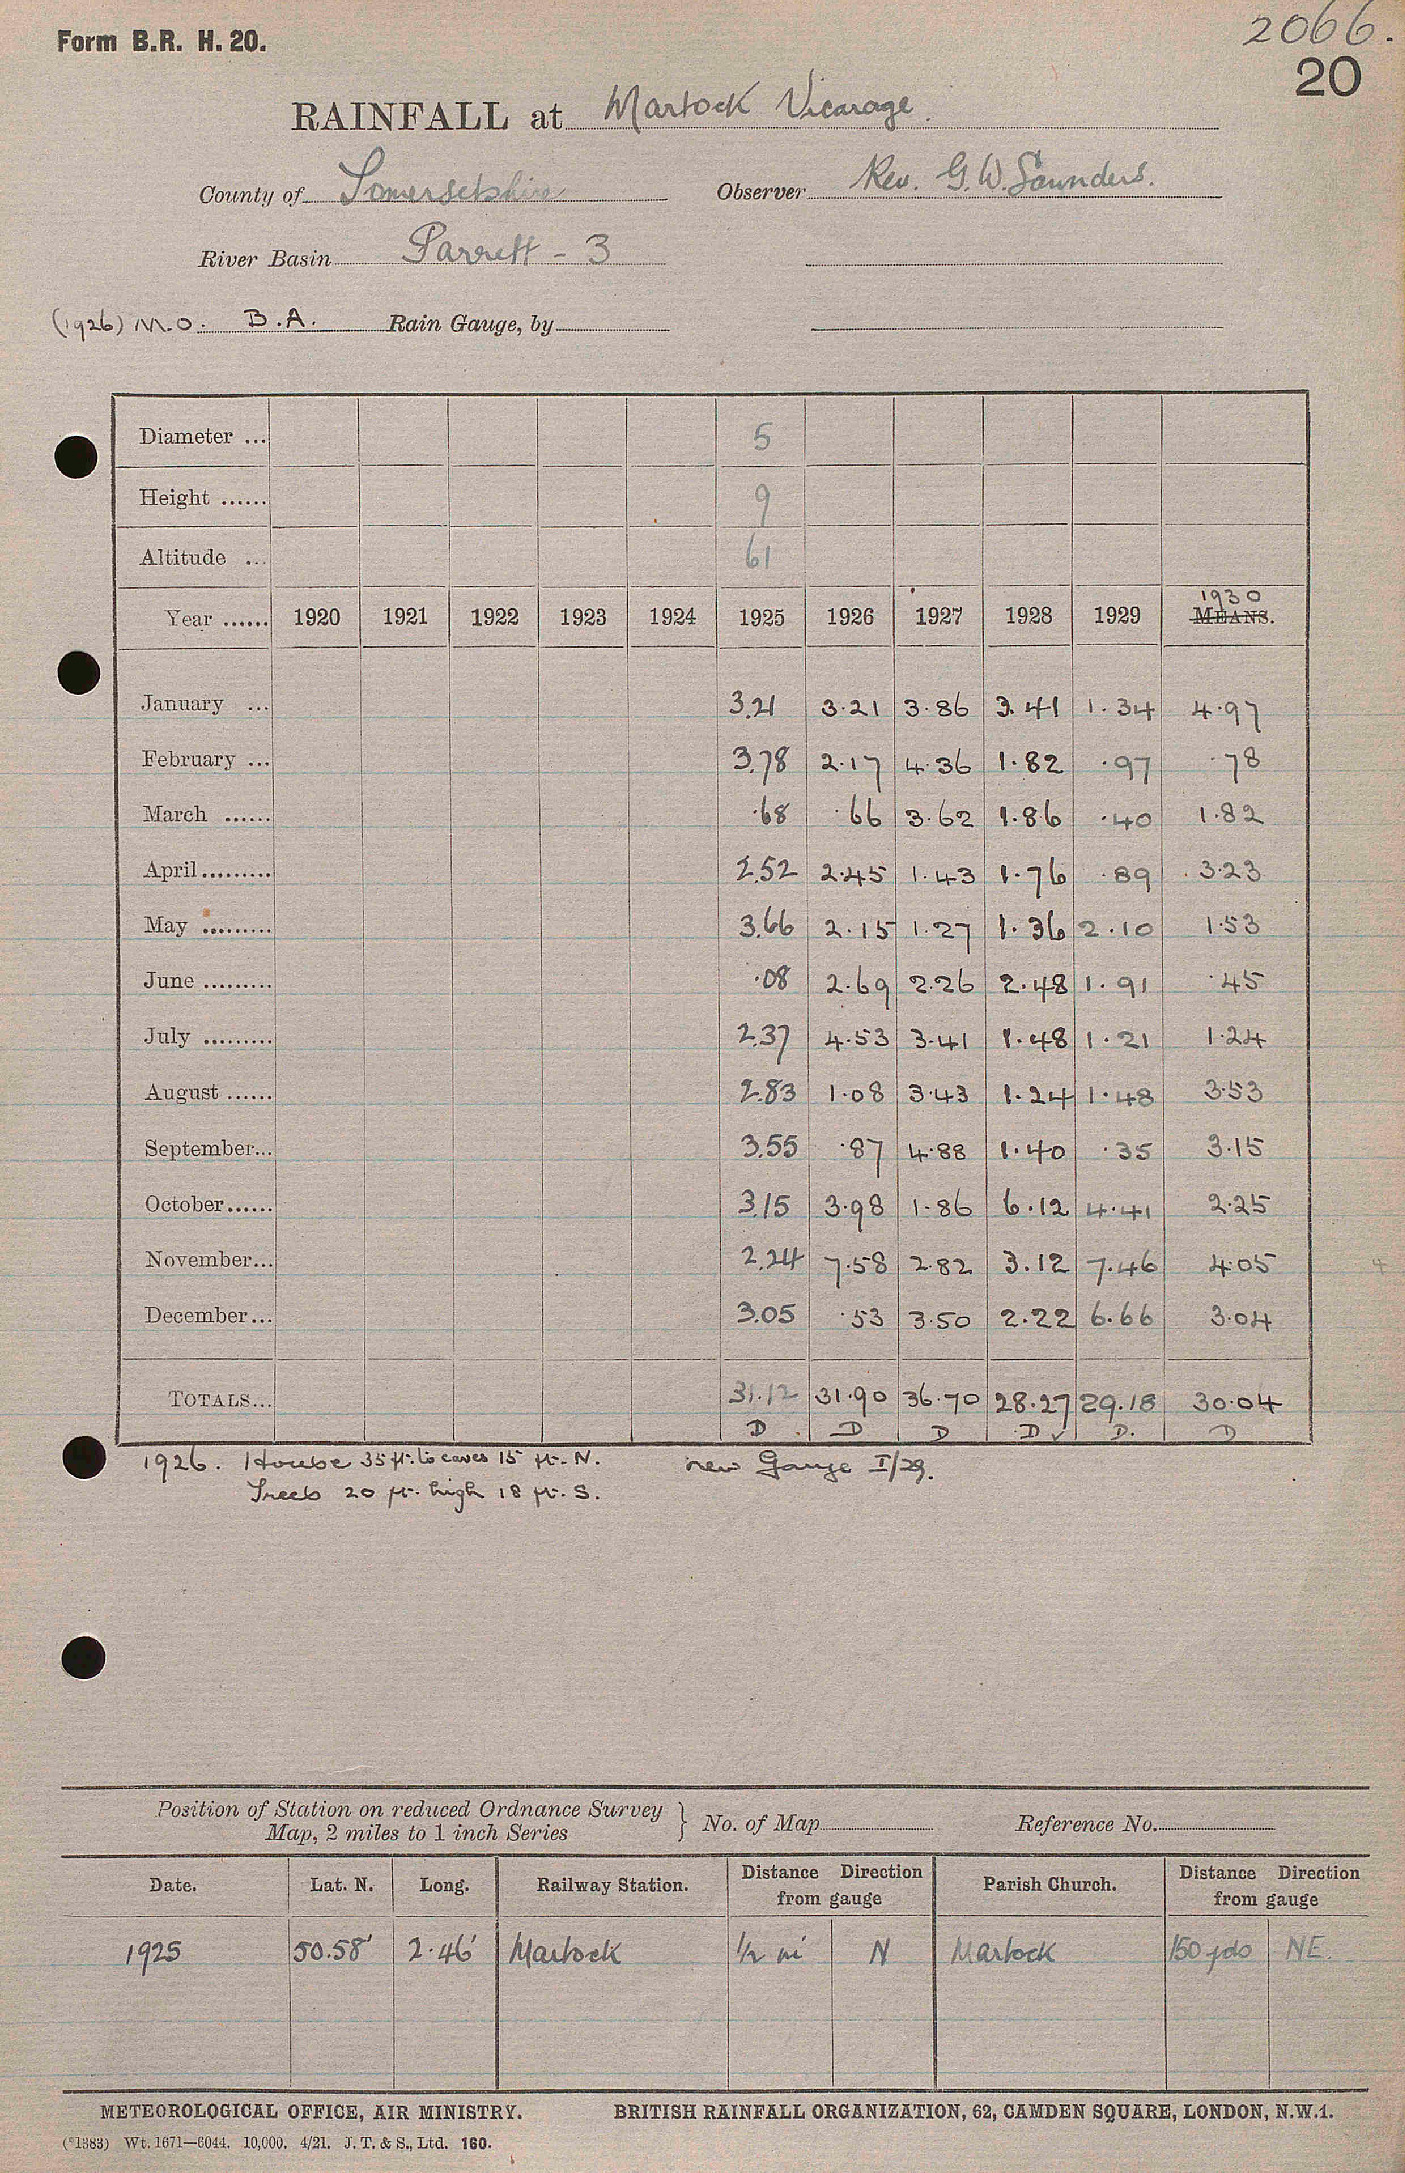 2066.
Form B.R. H. 20.
20
RAINFALL at Martock Vicarage.
County of Somersetshire Observer Rev. G. W. Saunders.
River Basin Parrett - 3
(1926) M.O. B.A. Rain Gauge, by
Diameter ... 5
Height ...... 9
Altitude ... 61
1930
Year ...... 1920 1921 1922 1923 1924 1925 1926 1927 1928 1929 MEANS.
January ... 3.21 3.21 3.86 3.41 1.34 4.97
February ... 3.78 2.17 4.36 1.82 .97 .78
March ...... .68 .66 3.62 1.86 .40 1.82
April ......... 2.52 2.45 1.43 1.76 .89 3.23
May ......... 3.66 2.15 1.27 1.36 2.10 1.53
June ......... .08 2.69 2.26 2.48 1.91 .45
July ......... 2.37 4.53 3.41 1.48 1.21 1.24
August ...... 2.83 1.08 3.43 1.24 1.48 3.53
September... 3.55 .87 4.88 1.40 .35 3.15
October...... 3.15 3.98 1.86 6.12 4.41 2.25
November... 2.24 7.58 2.82 3.12 7.46 4.05
December... 3.05 .53 3.50 2.22 6.66 3.04
TOTALS... 31.12 31.90 36.70 28.27 29.18 30.04
D D D D ✓ D. D
1926. House 35 ft. to eaves 15 ft. N. new Gauge I/29.
Trees 20 ft. high 18 ft. S.
Position of Station on reduced Ordnance Survey } No. of Map Reference No.
Map, 2 miles to 1 inch Series
Date. Lat. N. Long. Railway Station. Distance Direction from gauge Parish Church. Distance Direction from gauge
1925 50.58' 2.46' Martock 1/2 mi N Martock 150 yds NE.
METEOROLOGICAL OFFICE, AIR MINISTRY. BRITISH RAINFALL ORGANIZATION, 62, CAMDEN SQUARE, LONDON, N.W.1.
(*1383) Wt. 1671—6044. 10,000. 4/21. J. T. & S., Ltd. 160.